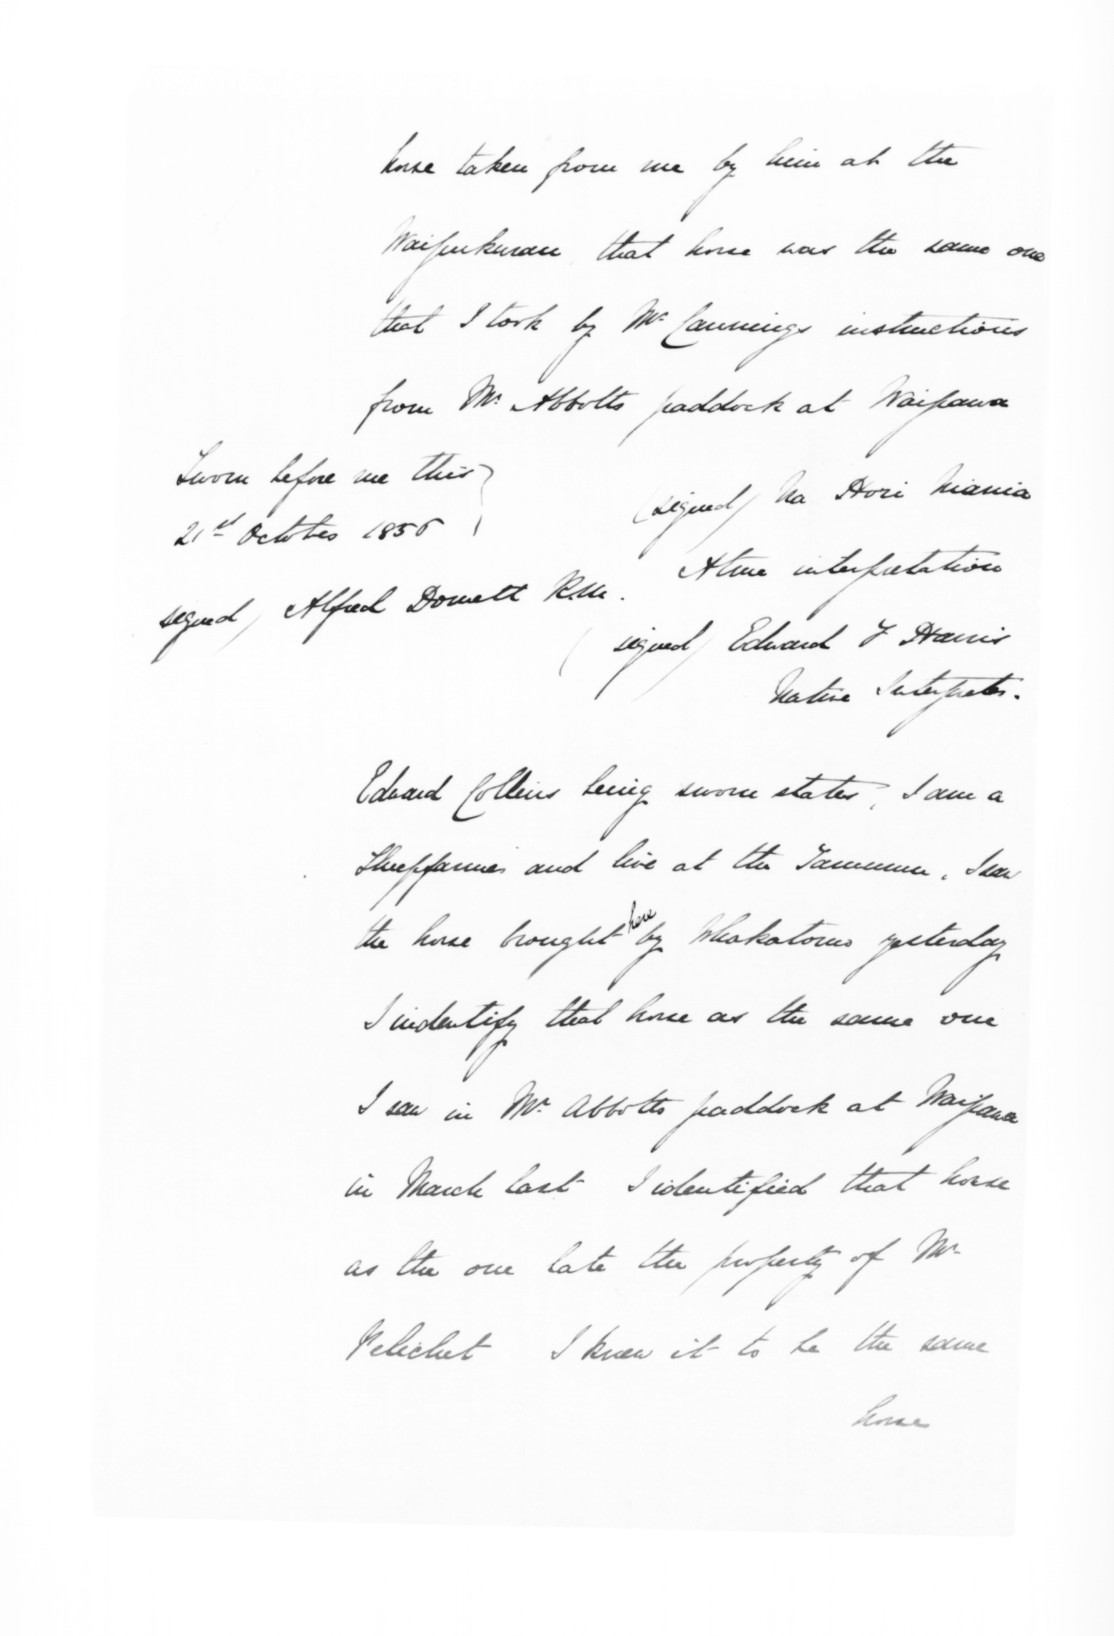 horse taken from me by him at the
Waipukurau that horse was the same one
that I took by Mr Cannings instructions
from Mr Abbotts paddock at Waipawa
Sworn before me this
21st October 1856
signed) Alfred Domett R.M.
(signed) Na Hori Niania
A true interpretation
(signed) Edward F Harris
Native Interpreter.
Edward Collins being sworn states, I am a
Sheepfarmer and live at the Tamumu, I saw
the horse brought here by Whakatomo yesterday
I indentify that horse as the same one
I saw in Mr Abbotts paddock at Waipawa
in March last I identified that horse
as the one late the property of Mr
Pelichet I knew it to be the same
horse